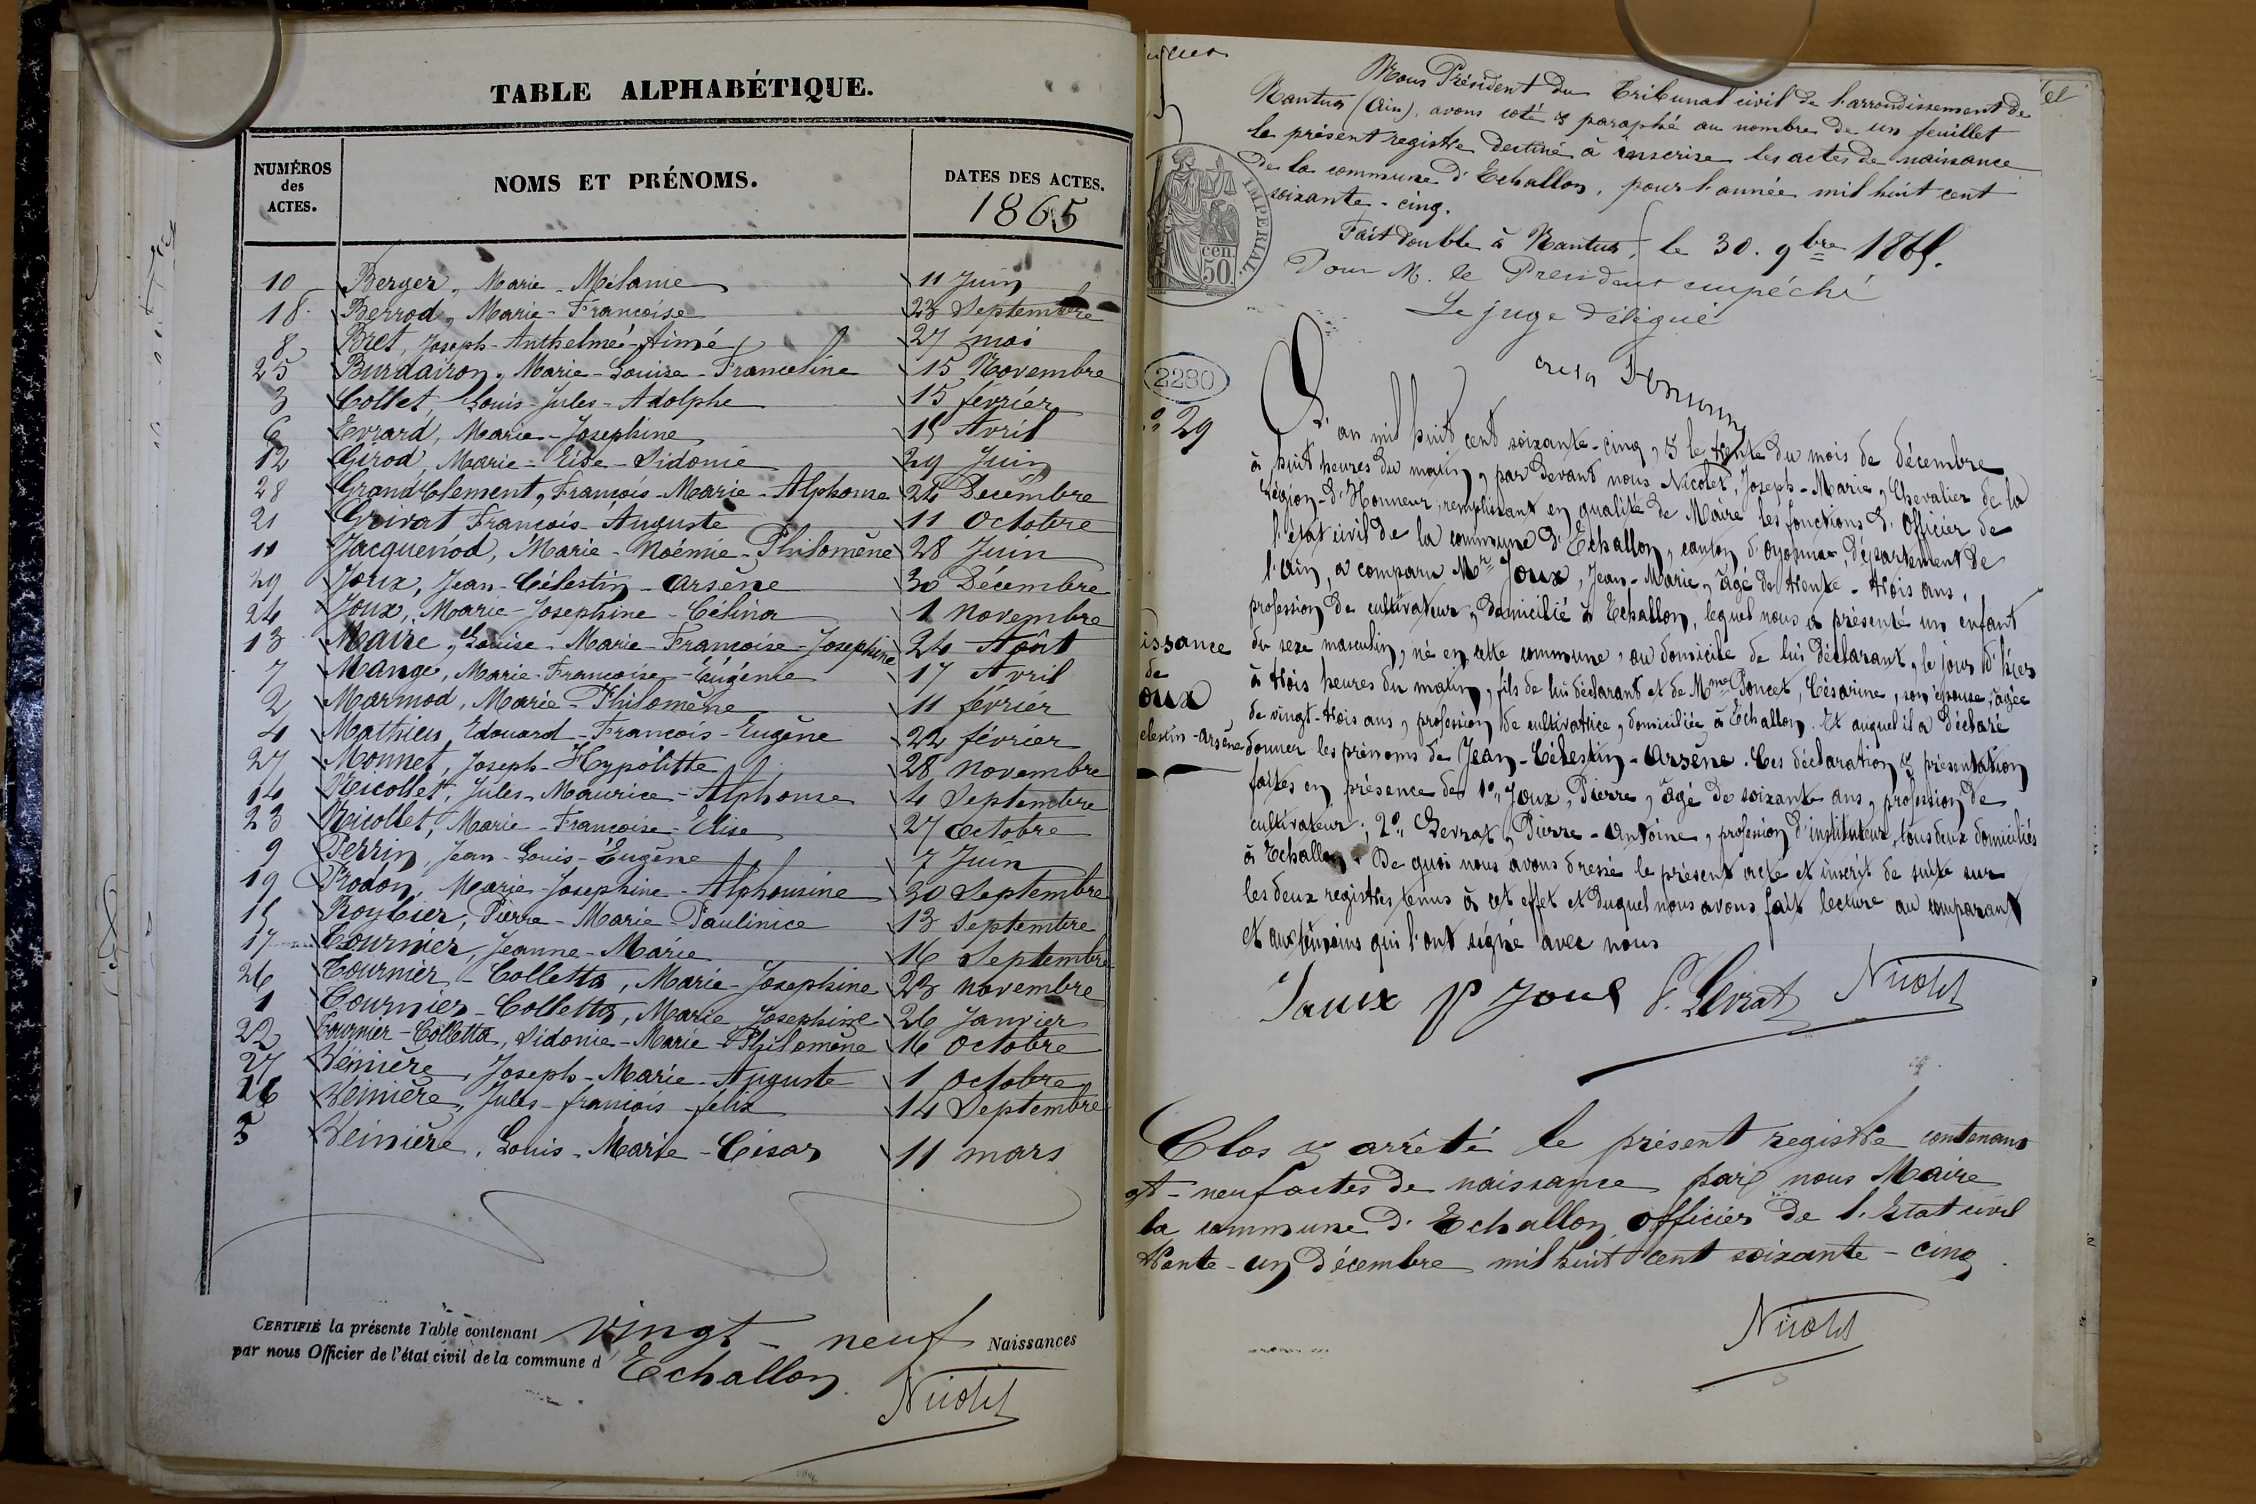 TABLE ALPHABÉTIQUE.
NUMÉROS des ACTES.
NOMS ET PRÉNOMS.
DATES DES ACTES.
1865
10 Berger, Marie-Mélanie 11 Juin
18 Berrod, Marie-Françoise 23 Septembre
8 Bret, Joseph-Anthelme-Aimé 27 mai
25 Burdairon, Marie-Louise-Franceline 15 Novembre
3 Collet, Louis-Jules-Adolphe 15 février
6 Evrard, Marie-Josephine 15 Avril
12 Girod, Marie-Elise-Sidonie 29 Juin
28 GrandClement, François-Marie-Alphonse 24 Décembre
21 Grivat François-Auguste 11 Octobre
11 Jacquenod, Marie-Noémie-Philomène 28 Juin
29 Joux, Jean-Célestin-Arsène 30 Décembre
24 Joux, Marie-Josephine-Célina 1 Novembre
13 Maire, Louise-Marie-Françoise-Josephine 24 Août
7 Mange, Marie-Françoise-Eugénie 17 Avril
2 Marmod, Marie-Philomène 11 février
4 Mathieu, Edouard-François-Eugène 22 février
27 Monnet, Joseph-Hypolitte 28 Novembre
14 Nicollet, Jules-Maurice-Alphonse 4 Septembre
23 Nicollet, Marie-Françoise-Elise 27 Octobre
9 Perrin, Jean-Louis-Eugène 7 Juin
19 Prodon, Marie-Josephine-Alphonsine 30 Septembre
15 Roybier, Pierre-Marie Paulinice 13 Septembre
17 Tournier, Jeanne-Marie 16 Septembre
26 Tournier-Colletta, Marie-Josephine 23 Novembre
1 Tournier-Colletta, Marie Josephine 26 Janvier
22 Tournier-Colletta, Sidonie-Marie-Philomène 16 Octobre
27 Véinière, Joseph-Marie-Auguste 1 Octobre
16 Véinière, Jules-françois-felix 14 Septembre
5 Véinière, Louis-Marie-César 11 mars
CERTIFIÉ la présente Table contenant vingt-neuf Naissances
par nous Officier de l'état civil de la commune d'Echallon.
Nicolet
Nous Président du Tribunal civil de l'arrondissement de
Nantua (Ain), avons coté & paraphé au nombre de un feuillet
le présent registre destiné à inscrire les actes de naissance
de la commune d'Echallon, pour l'année mil huit cent
soixante-cinq.
Fait double à Nantua, le 30. 9bre 1865.
Pour M. le President empéché
Le juge délégué
IMPERIAL.
50 cen.
2280
N° 29
L'an mil huit cent soixante-cinq, & le trente du mois de décembre
à huit heures du matin, par devant nous Nicolet, Joseph-Marie, Chevalier de la
Légion-d'Honneur, remplissant en qualité de Maire les fonctions d'Officier de
l'état civil de la commune d'Echallon, canton d'oyonnax, département de
l'ain, a comparu Mr Joux, Jean-Marie, âgé de trente-trois ans,
profession de cultivateur, domicilié à Echallon, lequel nous a présenté un enfant
du sexe masculin, né en cette commune, au domicile de lui déclarant, le jour d'hier
à trois heures du matin, fils de lui déclarant et de Mme Poncet, Césarine, son épouse, âgée
de vingt-trois ans, profession de cultivatrice, domiciliée à Echallon. Et auquel il a déclaré
donner les prénoms de Jean-Célestin-Arsène. Ces déclaration & présentation
faites en présence de 1° Joux, Pierre, âgé de soixante ans, profession de
cultivateur; 2° Levrat, Pierre-Antoine, profession d'instituteur, tous deux domiciliés
à Echallon. De quoi nous avons dressé le présent acte et inscrit de suite sur
les deux registres tenus à cet effet et duquel nous avons fait lecture au comparant
et aux témoins qui l'ont signé avec nous
issance
de
oux
elestin-Arsène
Jaux P Joux P. Levrat Nicolet
Clos & arrêté le présent registre contenant
gt-neuf actes de naissance par nous Maire
la commune d'Echallon officier de l'Etat civil
trente-un décembre mil huit cent soixante-cinq.
Nicolet